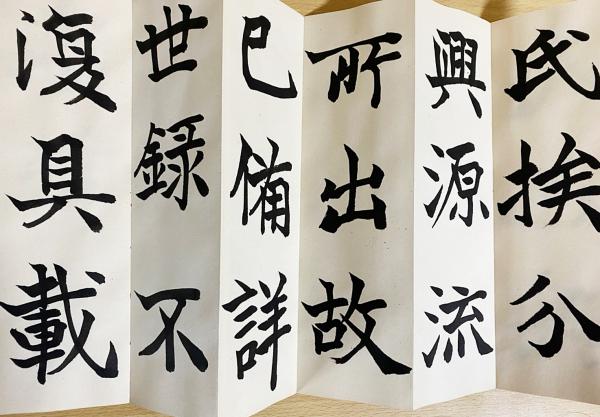 氏族分
興源流
所出故
已備詳
世録不
復具載